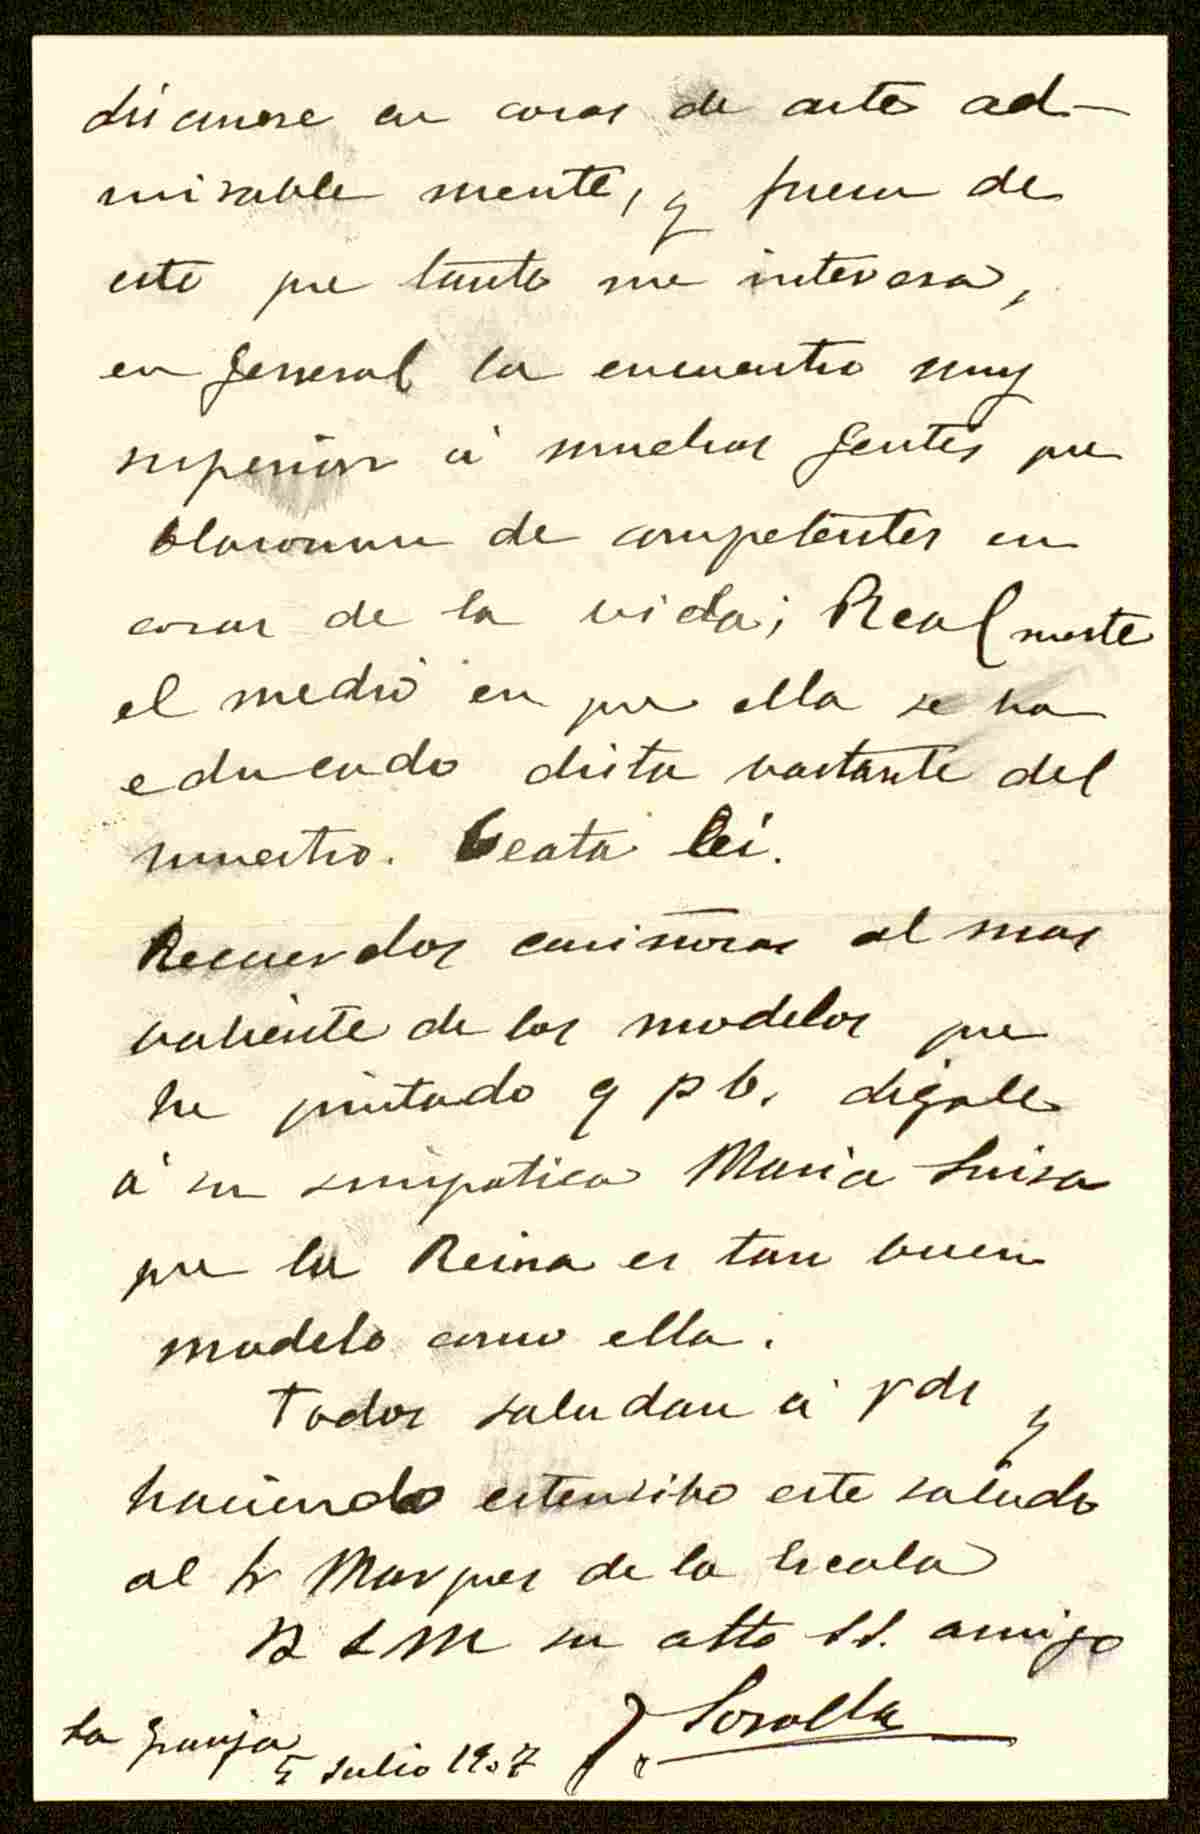 discurre en cosas de arte ad-
mirable mente, y fuera de
esto que tanto me interesa,
en general la encuentro muy
superior á muchas gentes que
blasonan de competentes en
cosas de la vida; Real mente
el medio en que ella se ha
educado dista vastante del
nuestro. beata lei.
Recuerdos cariñosos al mas
valiente de los modelos que
he pintado q p b. digale
á su simpatica Maria Luisa
que la Reina es tan buen
modelo como ella.
Todos saludan á Vds y
haciendo estensibo este saludo
al Sr Marques de la Escala
B S M su atto SS. amigo
J. Sorolla
La Granja
5 Julio 1907